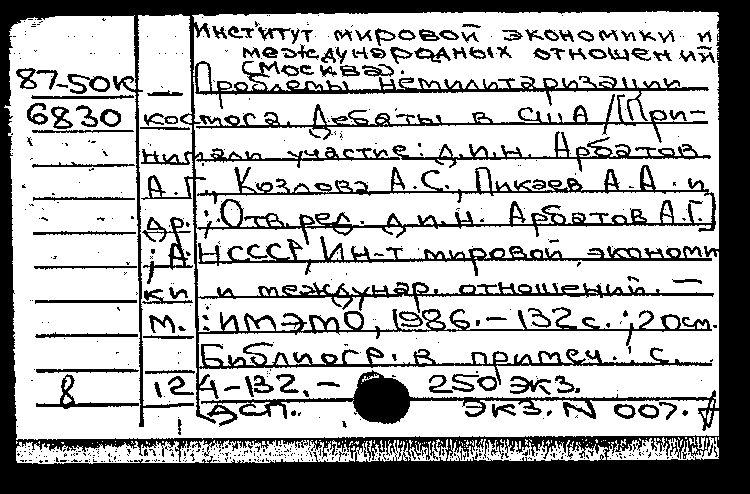 Институт мировой экономики и
международных отношений
(Москва).
87-50к — Проблемы немилитаризации
6830 космоса. Дебаты в США /[При-
нимали участие: д.и.н. Арбатов
А.Г., Козлова А.С., Пикаев А.А. и
др.; Отв. ред. д.и.н. Арбатов А.Г.]
; АН СССР, Ин-т мировой экономи
ки и междунар. отношений. —
М. : ИМЭМО, 1986. – 132 с. ; 20 см.
Библиогр. в примеч.: с.
8 124–132. – 250 экз.
Дсп. Экз. N 007.